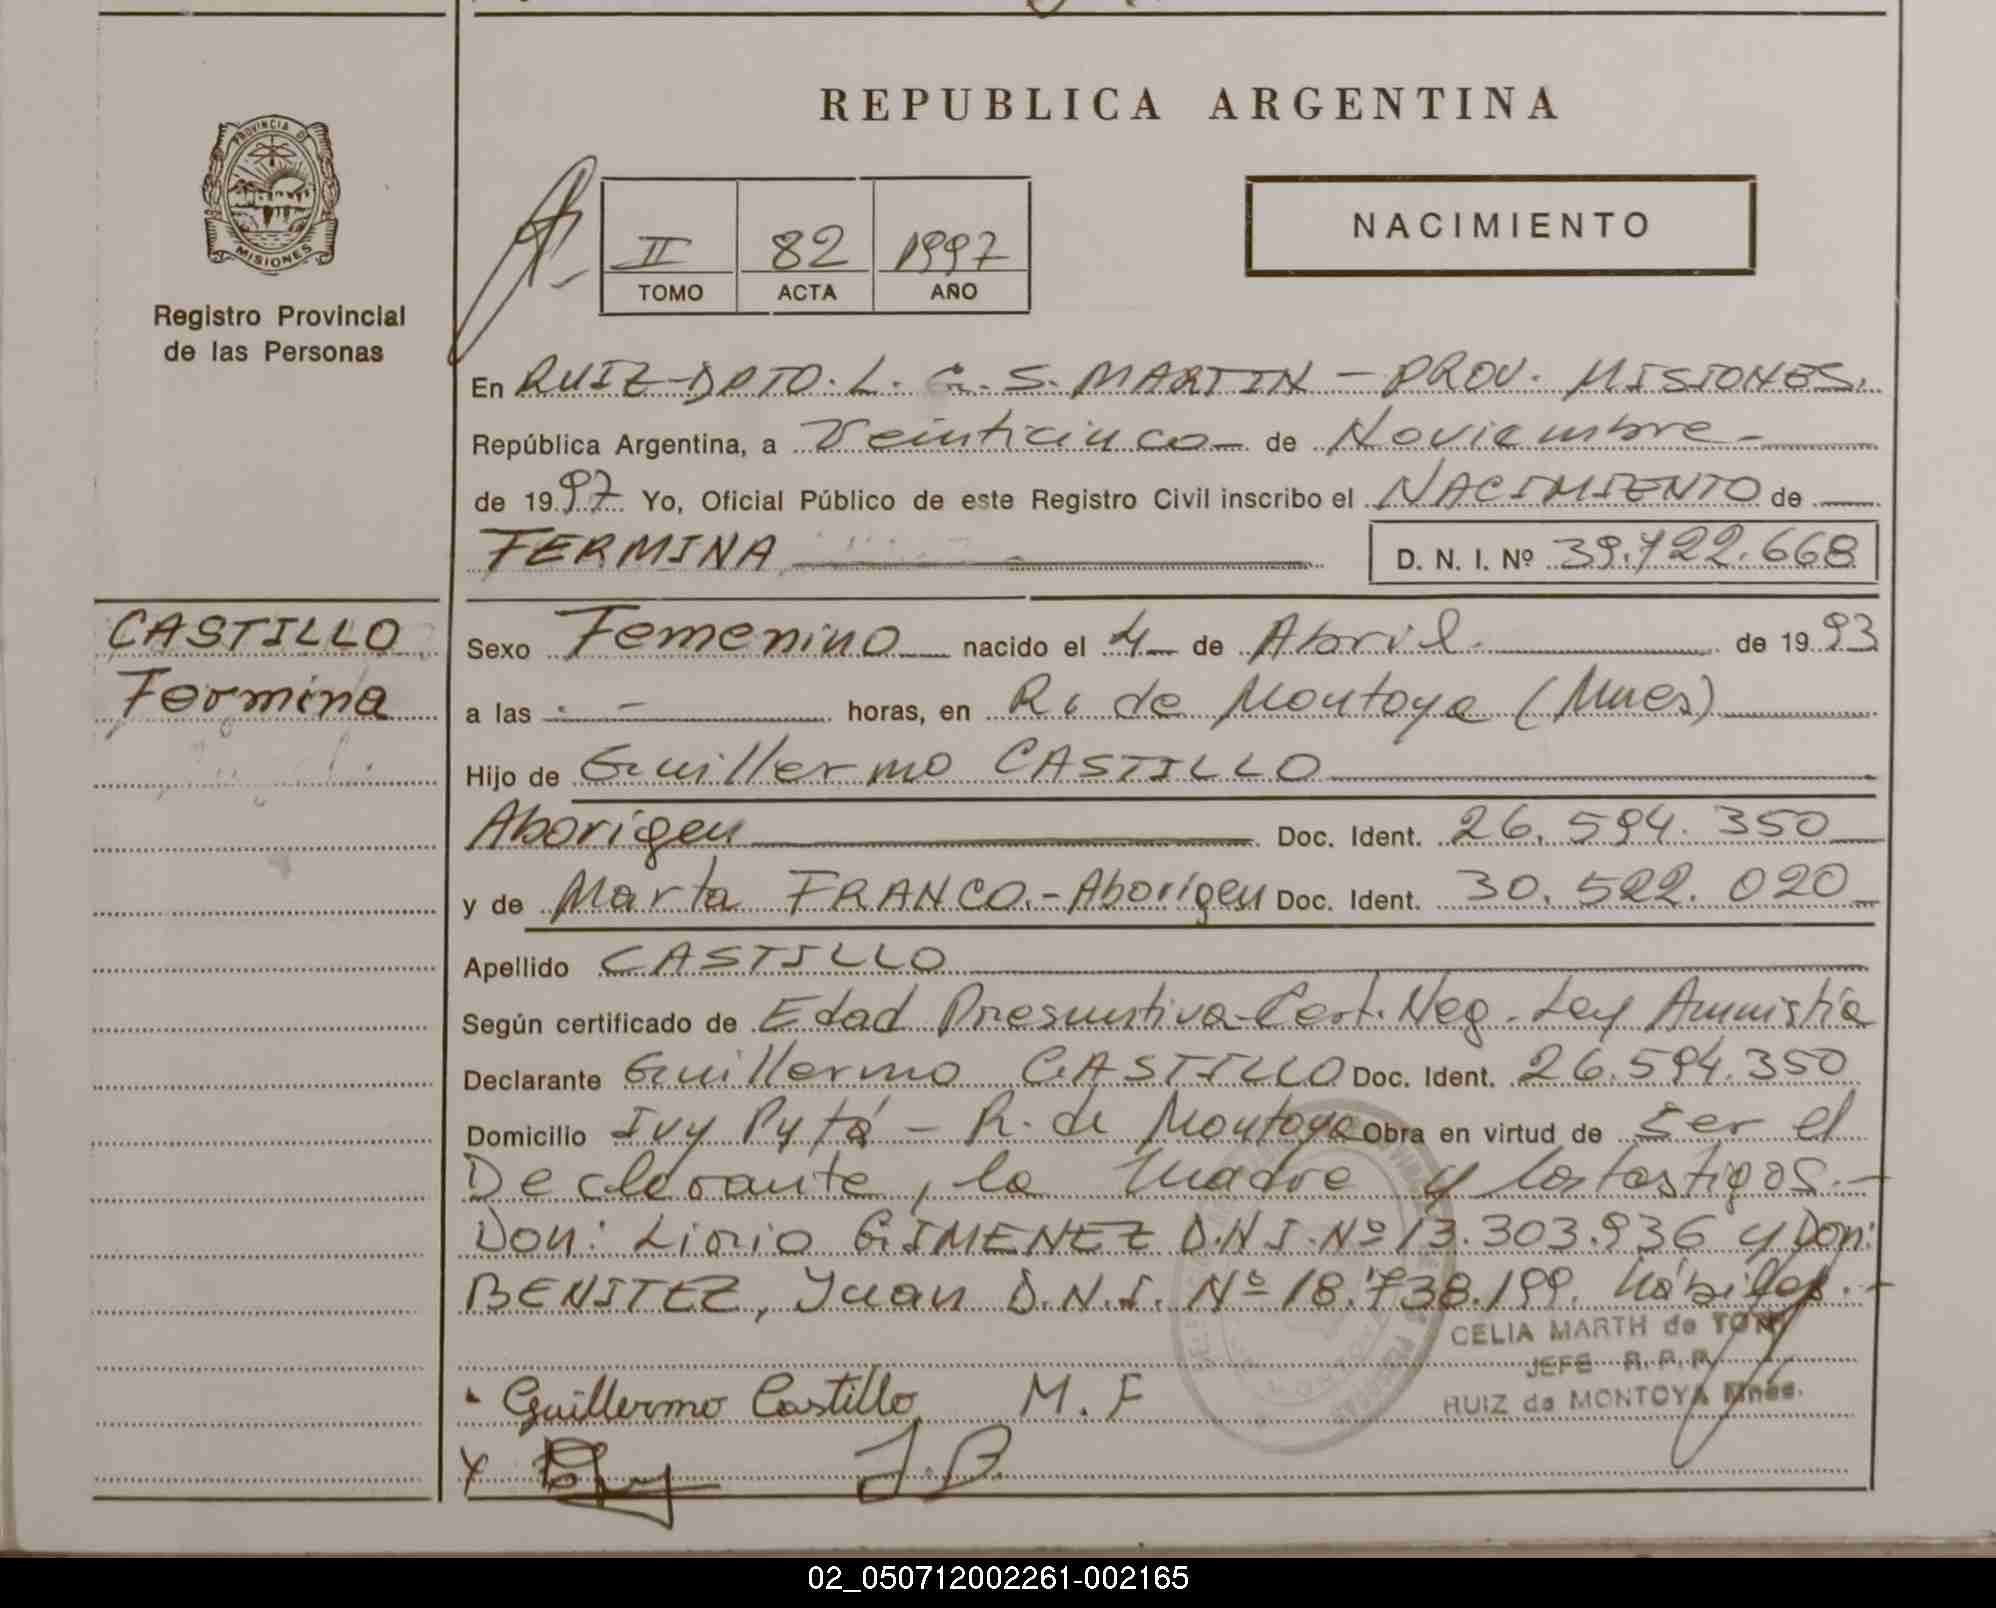 PROVINCIA D
MISIONES
Registro Provincial
de las Personas
REPUBLICA ARGENTINA
II 82 1997
TOMO ACTA AÑO
NACIMIENTO
En RUIZ-DPTO. L. G. S. MARTIN - PROV. MISIONES.
República Argentina, a Veinticinco de Noviembre
de 1997 Yo, Oficial Público de este Registro Civil inscribo el NACIMIENTO de
FERMINA D. N. I. Nº 39.722.668
CASTILLO
Fermina
Sexo Femenino nacido el 4 de Abril de 1993
a las - horas, en R. de Montoya (Mnes)
Hijo de Guillermo CASTILLO
Aborigen Doc. Ident. 26.594.350
y de Marta FRANCO.- Aborígen Doc. Ident. 30.522.020
Apellido CASTILLO
Según certificado de Edad Presuntiva-Cert. Neg. Ley Amnistía
Declarante Guillermo CASTILLO Doc. Ident. 26.594.350
Domicilio Ivy Pytá - R. de Montoya Obra en virtud de ser el
Declarante, la madre y los testigos.-
Don: Lirio GIMENEZ D.N.I. Nº 13.303.936 y Don:
BENITEZ, Juan D.N.I. Nº 18.738.199. hábiles.-
CELIA MARTH de TONI
JEFE R.P.P.
RUIZ de MONTOYA Mnes.
Guillermo Castillo M.F
J.B.
02_050712002261-002165